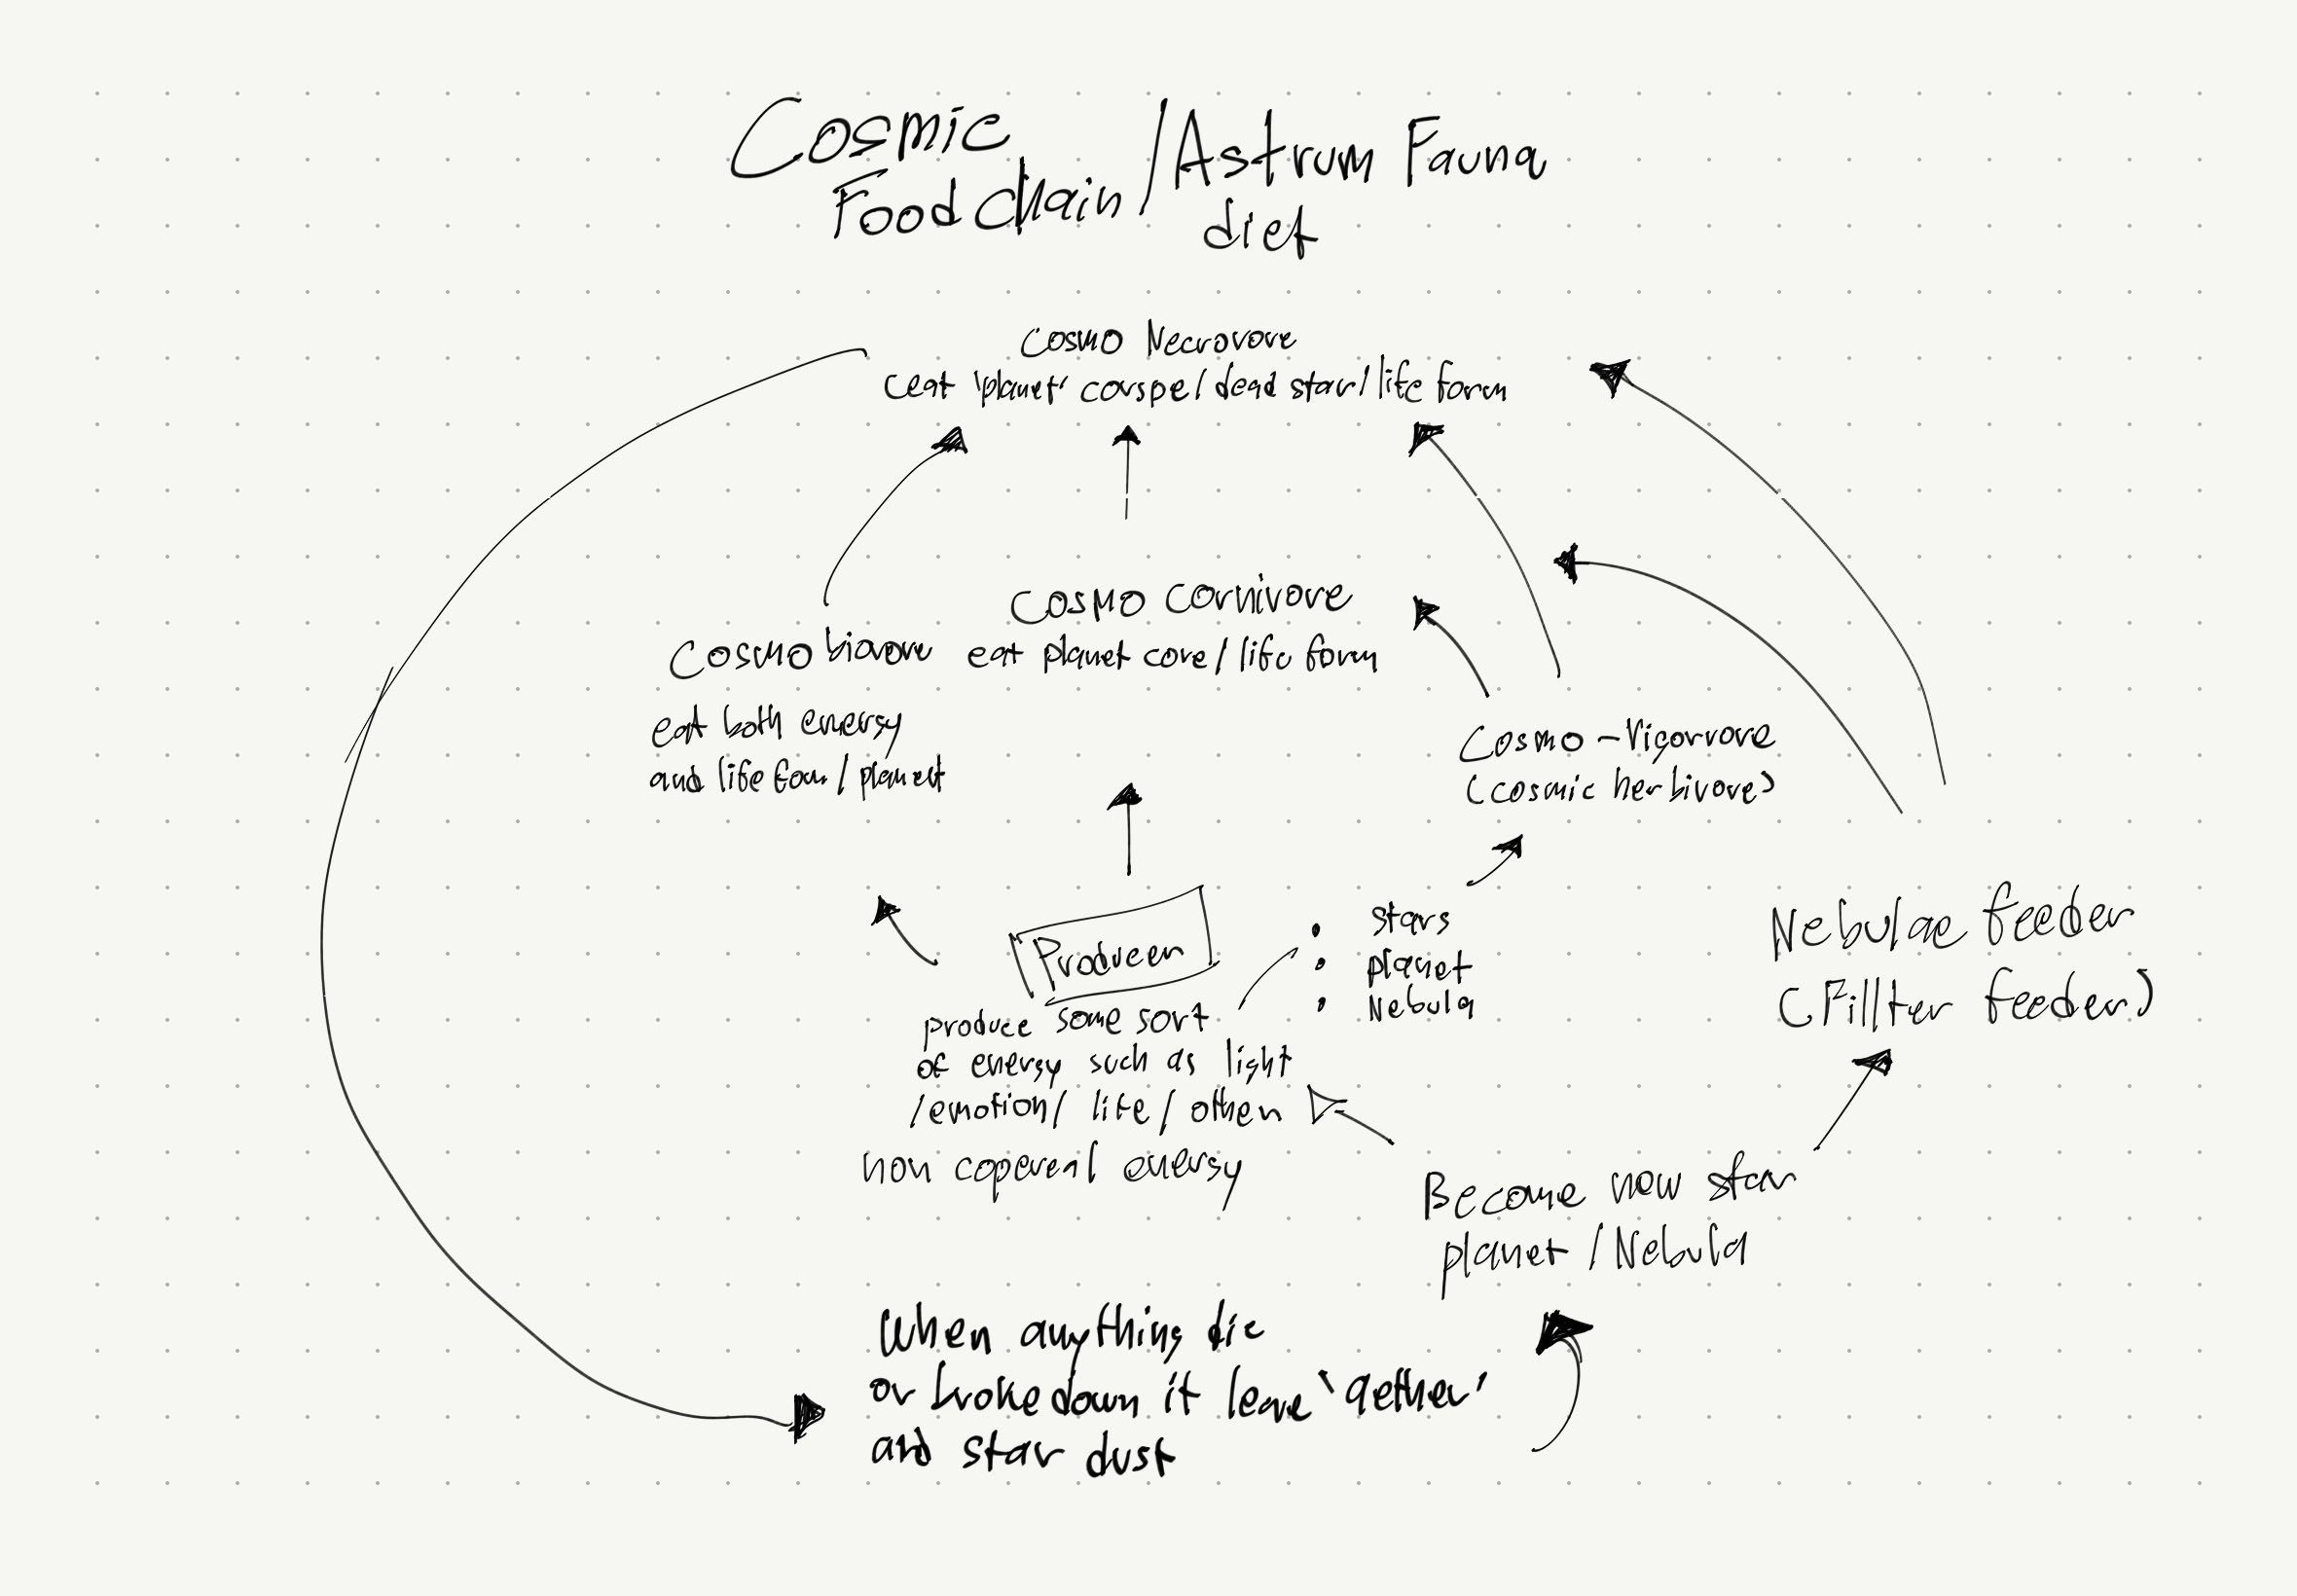 Cosmic
Food Chain / Astrum Fauna
diet
Cosmo Necrovore
(eat 'planet' corspe/ dead star/ life form
Cosmo Cornivore
eat planet core/ life form
Cosmo biovore
eat both energy
and life form / planet
Cosmo-Vigorvore
(cosmic herbivore)
Producer
• stars
• planet
• Nebula
produce some sort
of energy such as light
/emotion/ life / other
non copereal energy
Nebulae feeder
(Fillter feeder)
Become new star
planet / Nebula
When anything die
or broke down it leave 'aether'
and star dust